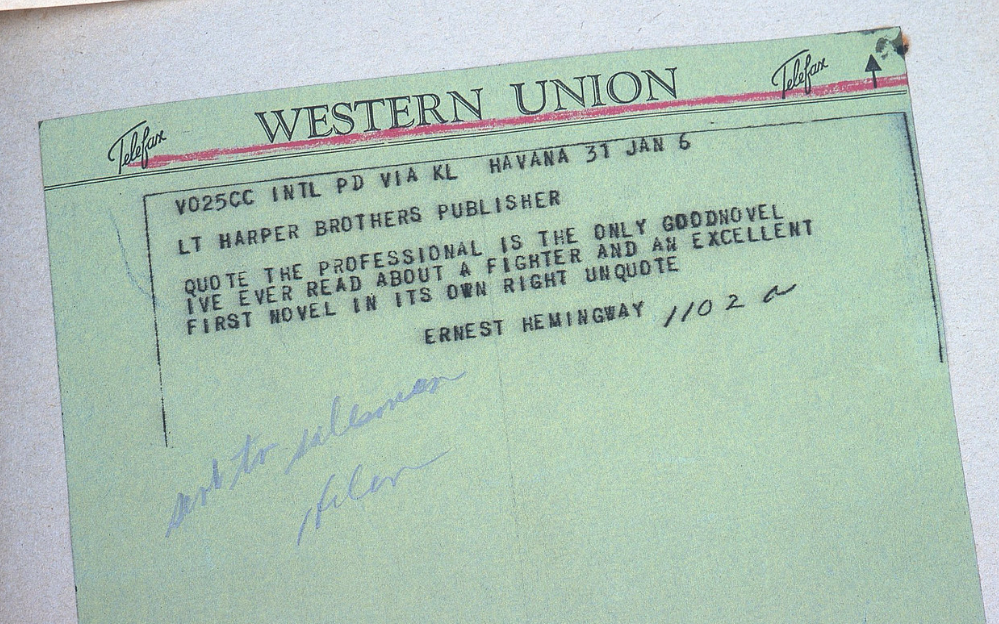 Telefax WESTERN UNION Telefax
VO25CC INTL PD VIA KL HAVANA 31 JAN 6
LT HARPER BROTHERS PUBLISHER
QUOTE THE PROFESSIONAL IS THE ONLY GOODNOVEL
IVE EVER READ ABOUT A FIGHTER AND AN EXCELLENT
FIRST NOVEL IN ITS OWN RIGHT UNQUOTE
ERNEST HEMINGWAY 1102 a
sent to salesman